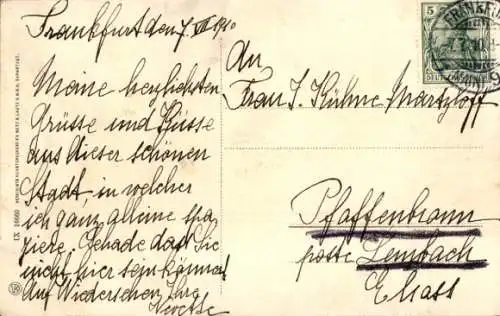 Frankfurt den 7 VII 1910
Meine herzlichsten
Grüsse und Küsse
aus dieser schönen
Stadt, in welcher
ich ganz alleine spa
ziere. Schade das Sie
nicht hier sein können
Auf Wiedersehen Ihre
An
Frau J. Kühne-Martzloff
Pfaffenbronn
poste Lembach
Elsass
5
FRANKFU
7.7.10.
DEUTSCHES